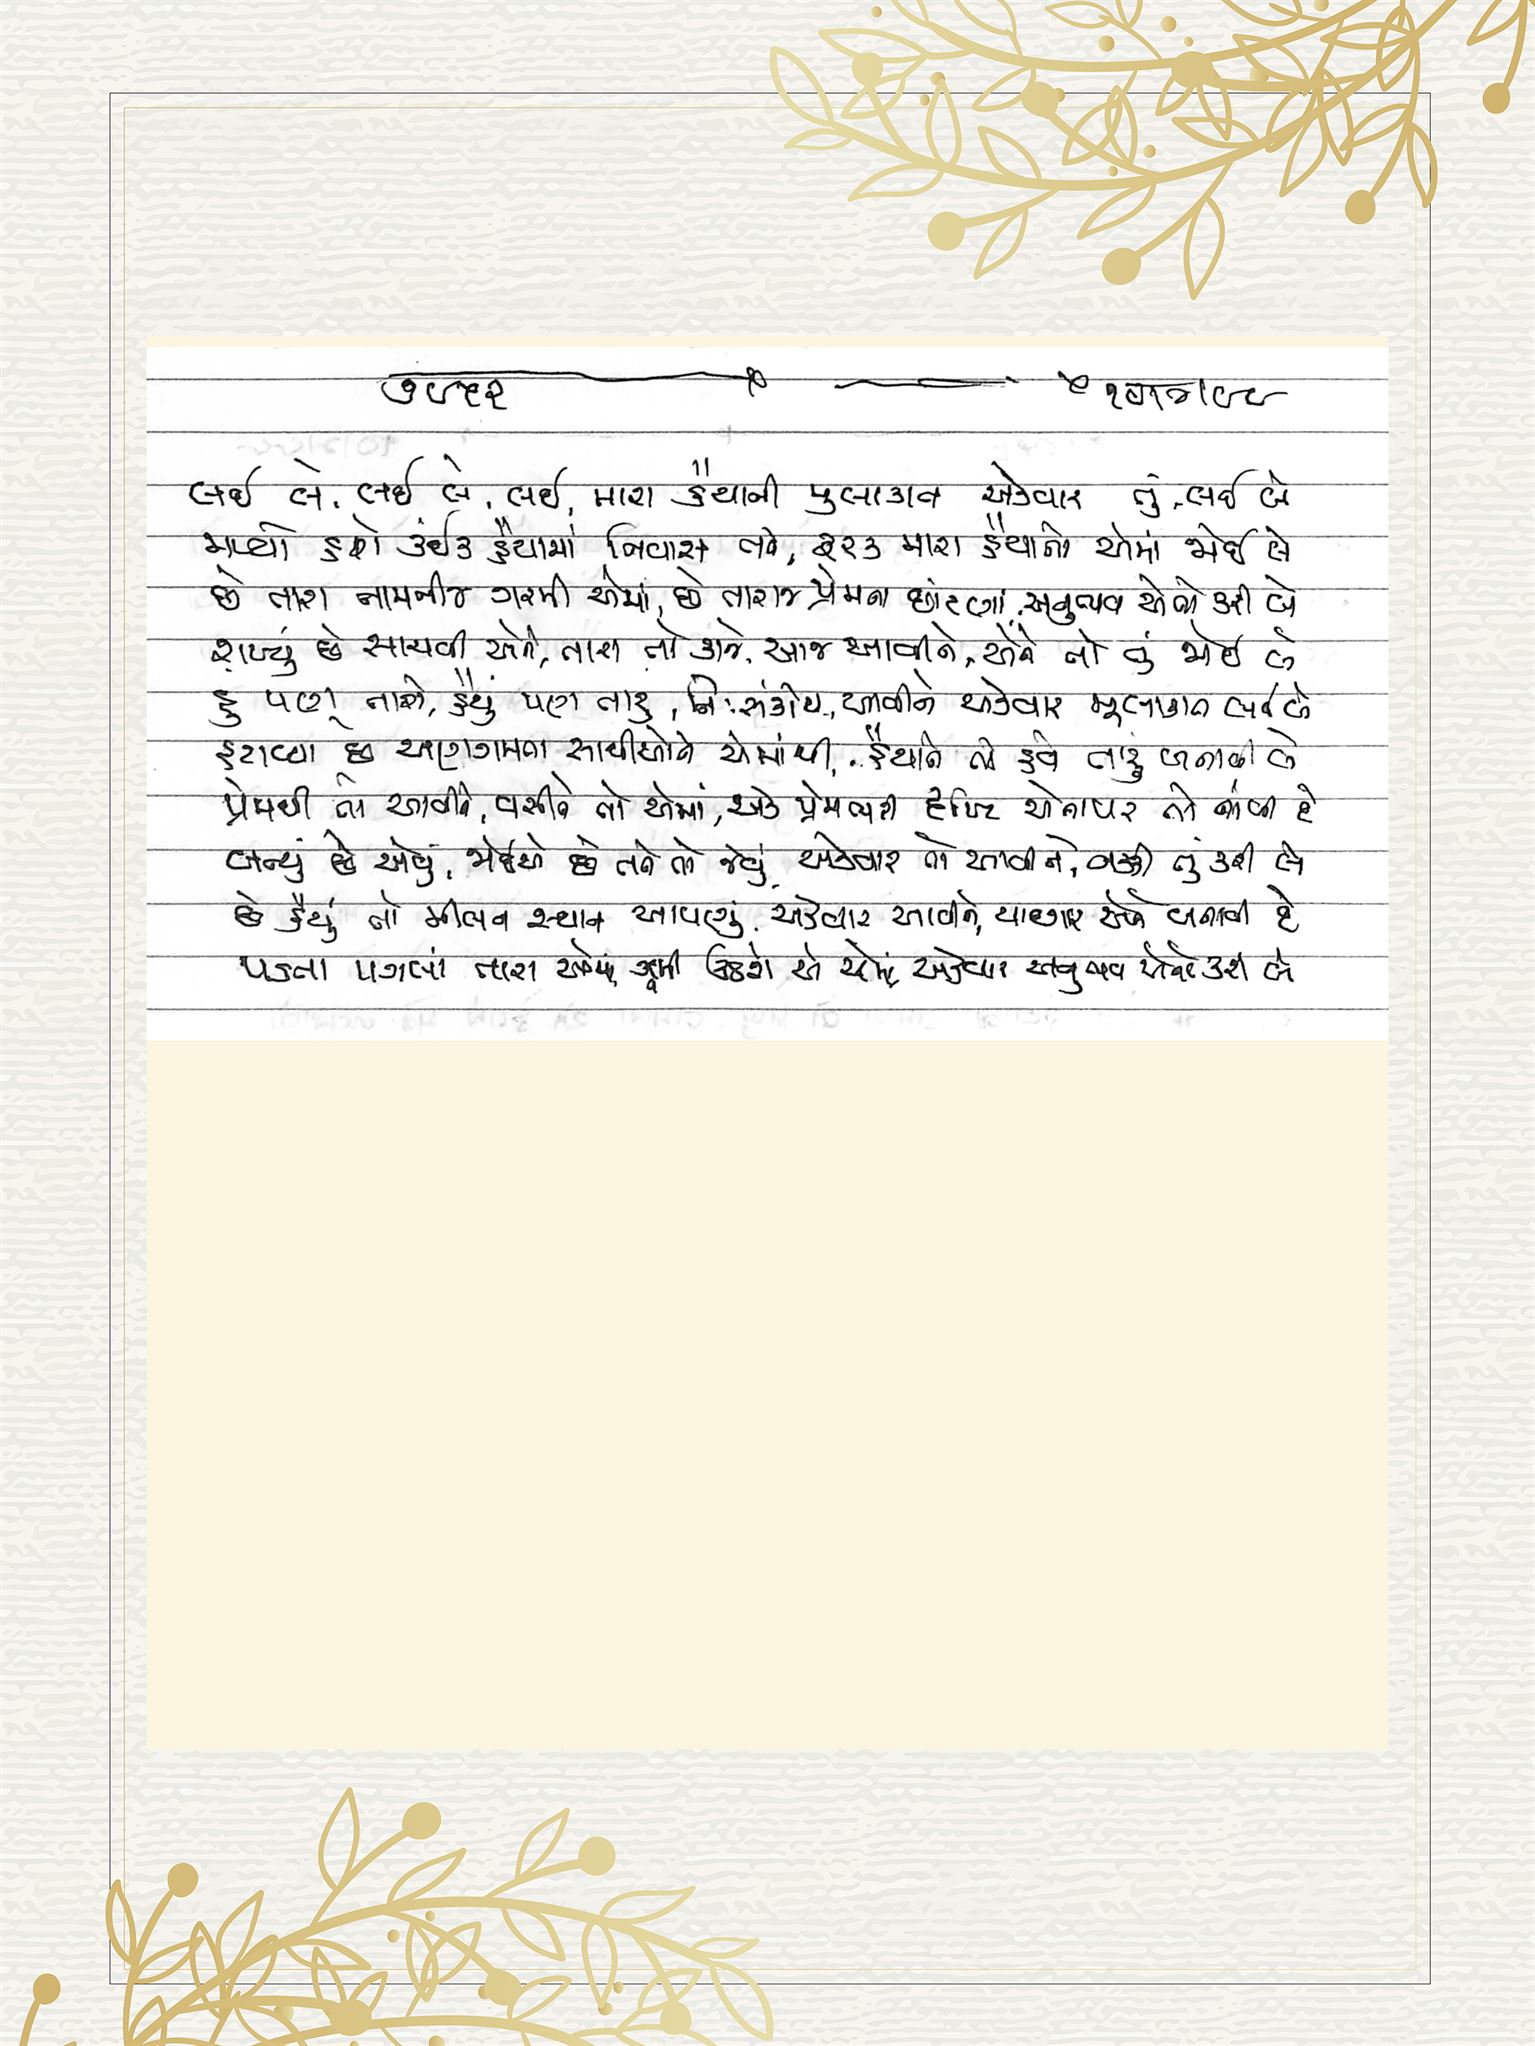 ૭૯૫૨ ૧૯/૪/૯૯
લઈ લે, લઈ લે, લઈ, મારા હૈયાની મુલાકાત એકવાર તું, લઈ લે
મળ્યો હશે કંઈક હૈયામાં નિવાસ તને, ફરક મારા હૈયાનો એમાં જોઈ લે
છે તારા નામનીજ ગરમી એમાં, છે તારાજ પ્રેમના છાંટણાં, અનુભવ એનો કરી લે
રાખ્યું છે સાચવી એને, તારા તો કાજે, આજ આવીને, એને તો તું જોઈ લે
હું પણ તારો, હૈયું પણ તારું, નિઃસંકોચ, આવીને એકવાર મૂલાકાત લઈ લે
હટાવ્યા છે અણગમતા સાથીઓને એમાંથી, હૈયાને તો હવે તારું બનાવી લે
પ્રેમથી તો આવીને, વસીને તો એમાં, એક પ્રેમભરી દૃષ્ટિ એનાપર તો નાંખી દે
બન્યું છે એવું, જોઈએ છે તને તો જેવું, એકવાર તો આવીને, નક્કી તું કરી લે
છે હૈયું તો મીલન સ્થાન આપણું, એકવાર આવીને, યાદગાર એને બનાવી દે
પડતા પગલાં તારા એમાં, ઝૂમી ઉઠશે એ એમાં, એકવાર અનુભવ એનો કરી લે